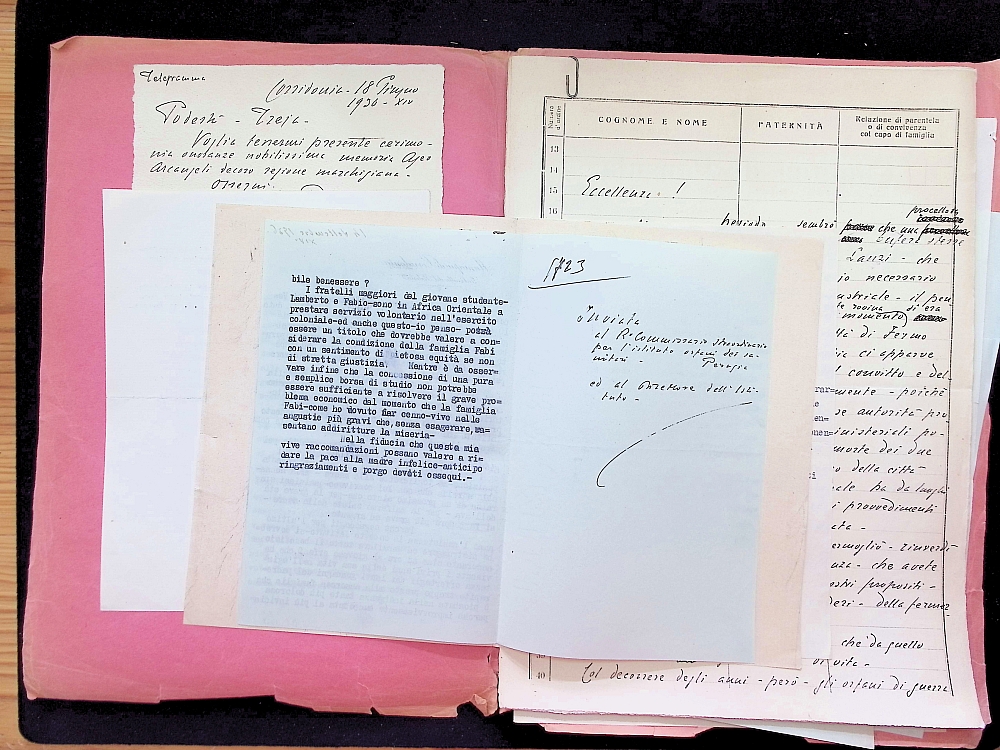 Telegramma
Corridonia - 18 Giugno
1936 - XIV
Podestà - Treja -
Voglia tenermi presente cerimo-
nia onoranze nobilissima memoria Ageo
Arcangeli decoro regione marchigiana -
Osserni
14 settembre 1936
bile benessere ?
I fratelli maggiori del giovane studente-
Lamberto e Fabio-sono in Africa Orientale a
prestare servizio volontario nell'esercito
coloniale-ed anche questo-io penso- potrà
essere un titolo che dovrebbe valere a con-
siderare la condizione della famiglia Fabi
con un sentimento di pietosa equità se non
di stretta giustizia. Mentre è da osser=
vare infine che la concessione di una pura
e semplice borsa di studio non potrebbe
essere sufficiente a risolvere il grave pro=
blema economico dal momento che la famiglia
Fabi-come ho dovuto far cenno-vive nelle
angustie più gravi che,senza esagerare,ra=
sentano addiritture la miseria-
Nella fiducia che questa mia
vive raccomandazioni possano valere a ri=
dare la pace alla madre infelice-anticipo
ringraziamenti e porgo devoti ossequi.-
5723
inviata
al R. Commissario straordinario
per l'istituto orfani dei sa-
nitari - Perugia
ed al Direttore dell'Isti-
tuto -
Numero
d'ordine
COGNOME E NOME
PATERNITÀ
Relazione di parentela
o di convivenza
col capo di famiglia
13
14
15
Eccellenza !
16
procellosa
periodo sembrò che una
essere
Lanzi - che
io necessario
ustriale - il pen
rovina di era
momento)
di Fermo
ia ci apparve
l convitto e del-
mente - poichè
se autorità pro
ministeriali po-
morte dei due
o della città
ale ha da lunghi
i provvedimenti
ata -
ermogliò - rinverdì-
nza - che avete
ostri propositi -
deri - della fermez
che da quello
vita -
40
Col decorrere degli anni - però - gli orfani di guerra